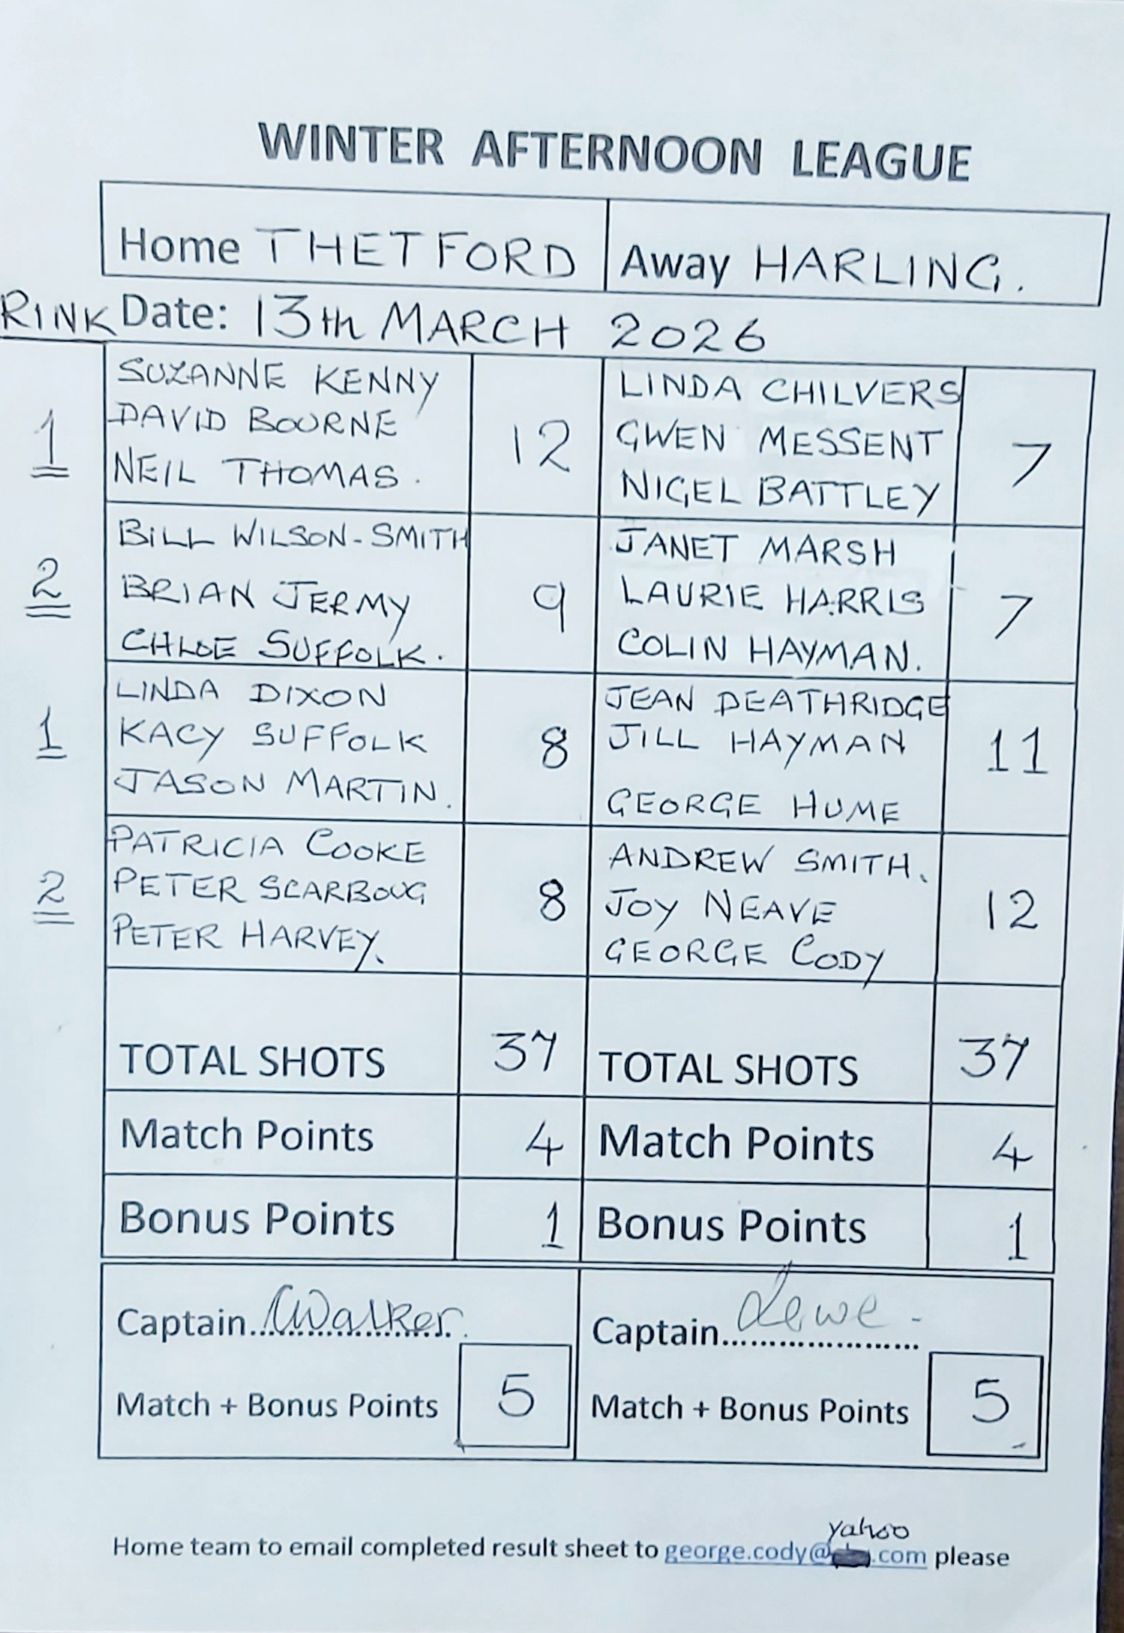 WINTER AFTERNOON LEAGUE
Home THETFORD Away HARLING.
RINK Date: 13th MARCH 2026
SUZANNE KENNY
DAVID BOURNE
NEIL THOMAS.
1
12
LINDA CHILVERS
GWEN MESSENT
NIGEL BATTLEY
7
BILL WILSON-SMITH
BRIAN JERMY
CHLOE SUFFOLK.
2
9
JANET MARSH
LAURIE HARRIS
COLIN HAYMAN.
7
LINDA DIXON
KACY SUFFOLK
JASON MARTIN.
1
8
JEAN DEATHRIDGE
JILL HAYMAN
GEORGE HUME
11
PATRICIA COOKE
PETER SCARBOUG
PETER HARVEY.
2
8
ANDREW SMITH.
JOY NEAVE
GEORGE CODY
12
TOTAL SHOTS 37 TOTAL SHOTS 37
Match Points 4 Match Points 4
Bonus Points 1 Bonus Points 1
Captain...Walker. Captain...
Match + Bonus Points 5 Match + Bonus Points 5
yahoo
Home team to email completed result sheet to george.cody@ .com please